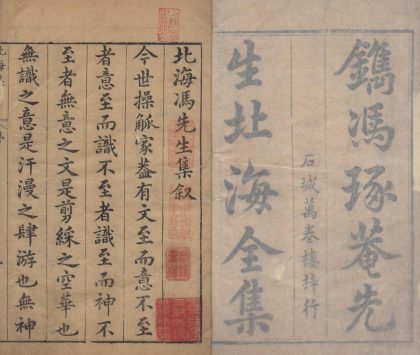 鐫馮琢菴先
生北海全集
石城萬卷樓梓行
北海馮先生集叙
今世操觚家葢有文至而意不至
者意至而識不至者識至而神不
至者無意之文是剪綵之空華也
無識之意是汗漫之肆游也無神